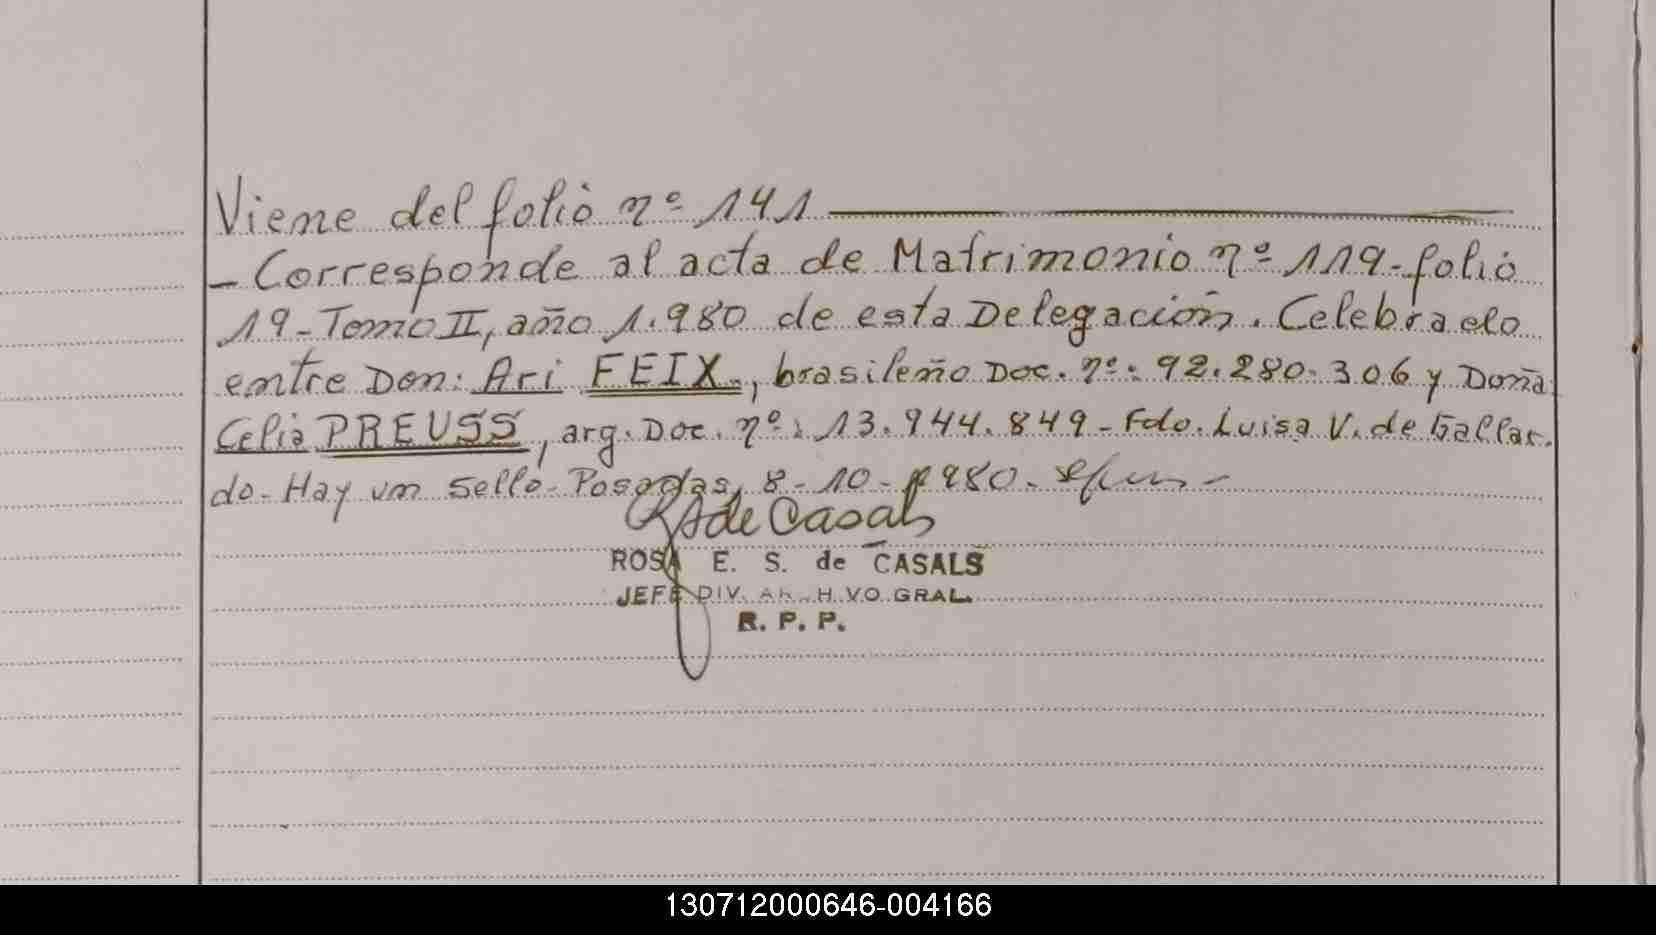 Viene del folio nº 141
- Corresponde al acta de Matrimonio nº 119 - folio
19 - Tomo II, año 1.980 de esta Delegación. Celebrado
entre Don: Ari FEIX., brasileño Doc. nº: 92.280.306 y Doña
Celia PREUSS, arg. Doc. nº: 13.944.849 - Fdo. Luisa V. de Gallar.
do - Hay un sello - Posadas, 8 - 10 - 1980.
de Casals
ROSA E. S. de CASALS
JEFE DIV. ARCHIVO GRAL.
R. P. P.
130712000646-004166